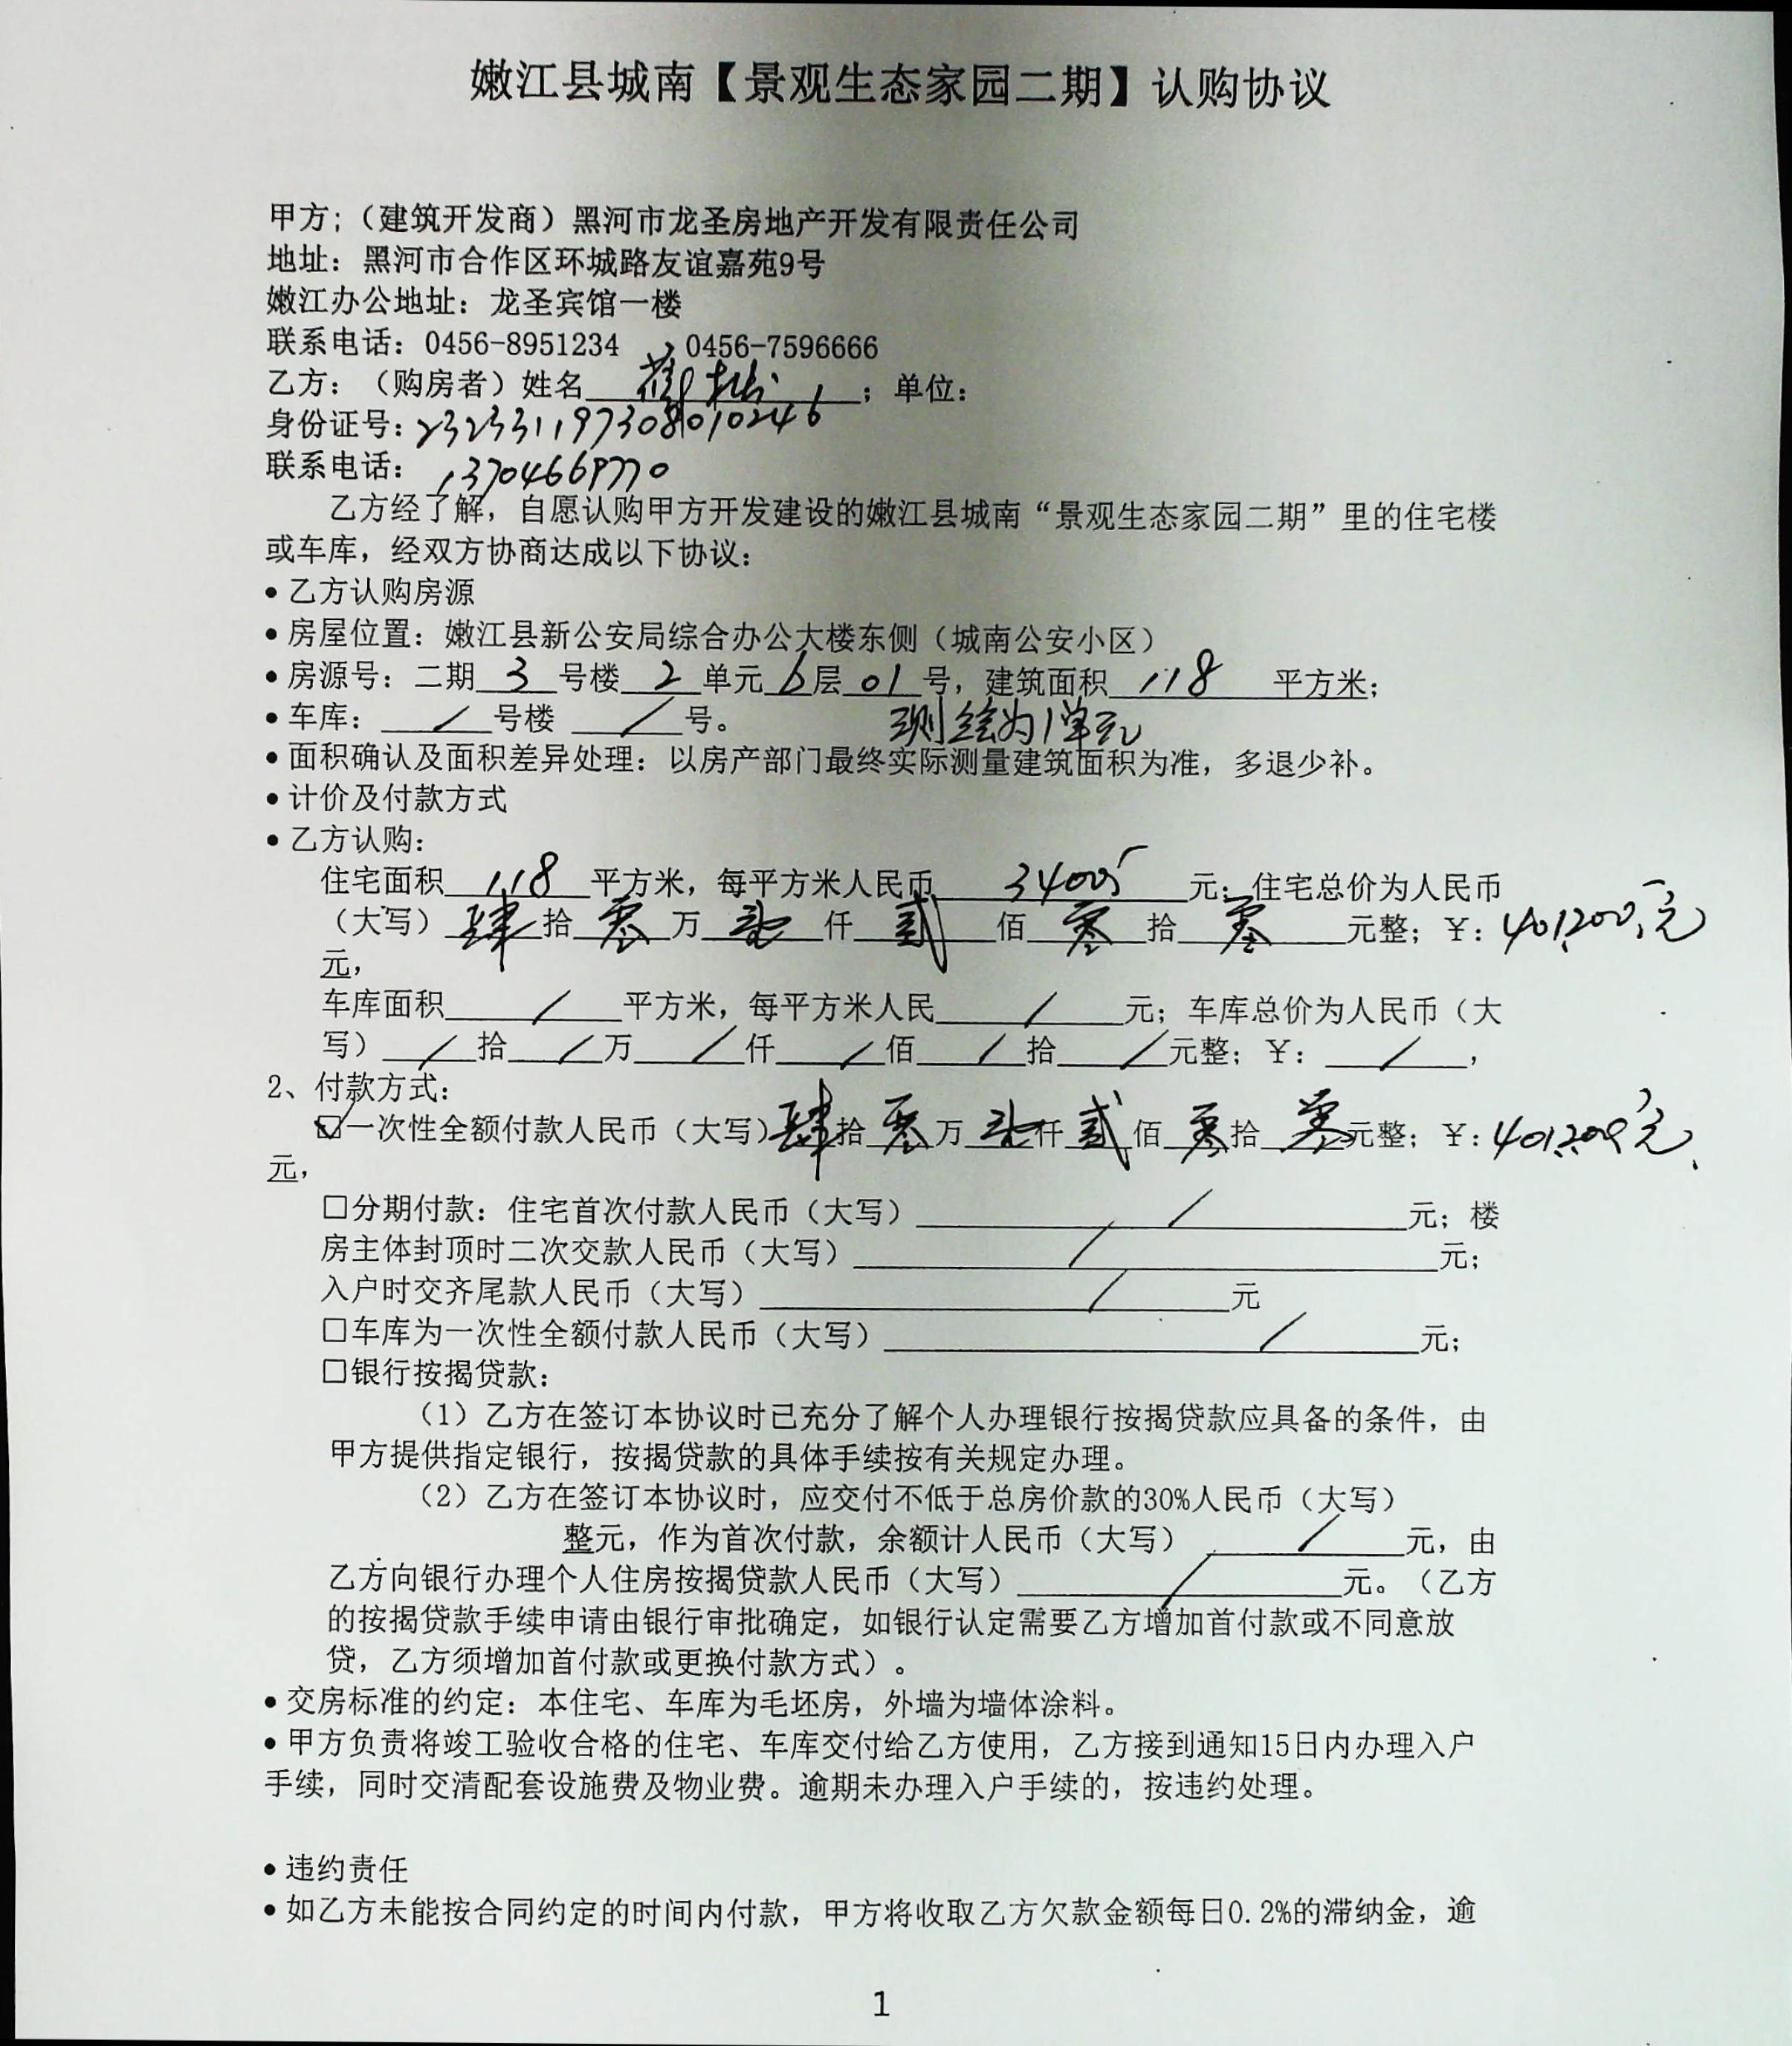 嫩江县城南【景观生态家园二期】认购协议
甲方;（建筑开发商）黑河市龙圣房地产开发有限责任公司
地址：黑河市合作区环城路友谊嘉苑9号
嫩江办公地址：龙圣宾馆一楼
联系电话：0456-8951234 、0456-7596666
乙方：（购房者）姓名；单位：
身份证号：232331197308010246
联系电话：
乙方经了解，自愿认购甲方开发建设的嫩江县城南“景观生态家园二期”里的住宅楼
或车库，经双方协商达成以下协议：
•乙方认购房源
•房屋位置：嫩江县新公安局综合办公大楼东侧（城南公安小区）
•房源号：二期 3 号楼 2 单元 6 层 01 号，建筑面积 118 平方米；
•车库： / 号楼 / 号。 测绘为1单元
•面积确认及面积差异处理：以房产部门最终实际测量建筑面积为准，多退少补。
•计价及付款方式
•乙方认购：
住宅面积 118 平方米，每平方米人民币 3400 元；住宅总价为人民币
（大写）肆拾零万壹仟贰佰零拾零元整；￥：401,200元
元，
车库面积 / 平方米，每平方米人民 / 元；车库总价为人民币（大
写） / 拾 / 万 / 仟 / 佰 / 拾 / 元整；￥： / ，
2、付款方式：
☑一次性全额付款人民币（大写）肆拾零万壹仟贰佰零拾零元整；￥：401,200元
元，
□分期付款：住宅首次付款人民币（大写） / 元；楼
房主体封顶时二次交款人民币（大写） / 元；
入户时交齐尾款人民币（大写） / 元
□车库为一次性全额付款人民币（大写） / 元；
□银行按揭贷款：
（1）乙方在签订本协议时已充分了解个人办理银行按揭贷款应具备的条件，由
甲方提供指定银行，按揭贷款的具体手续按有关规定办理。
（2）乙方在签订本协议时，应交付不低于总房价款的30%人民币（大写）
整元，作为首次付款，余额计人民币（大写） / 元，由
乙方向银行办理个人住房按揭贷款人民币（大写） / 元。（乙方
的按揭贷款手续申请由银行审批确定，如银行认定需要乙方增加首付款或不同意放
贷，乙方须增加首付款或更换付款方式）。
•交房标准的约定：本住宅、车库为毛坯房，外墙为墙体涂料。
•甲方负责将竣工验收合格的住宅、车库交付给乙方使用，乙方接到通知15日内办理入户
手续，同时交清配套设施费及物业费。逾期未办理入户手续的，按违约处理。
•违约责任
•如乙方未能按合同约定的时间内付款，甲方将收取乙方欠款金额每日0.2%的滞纳金，逾
1